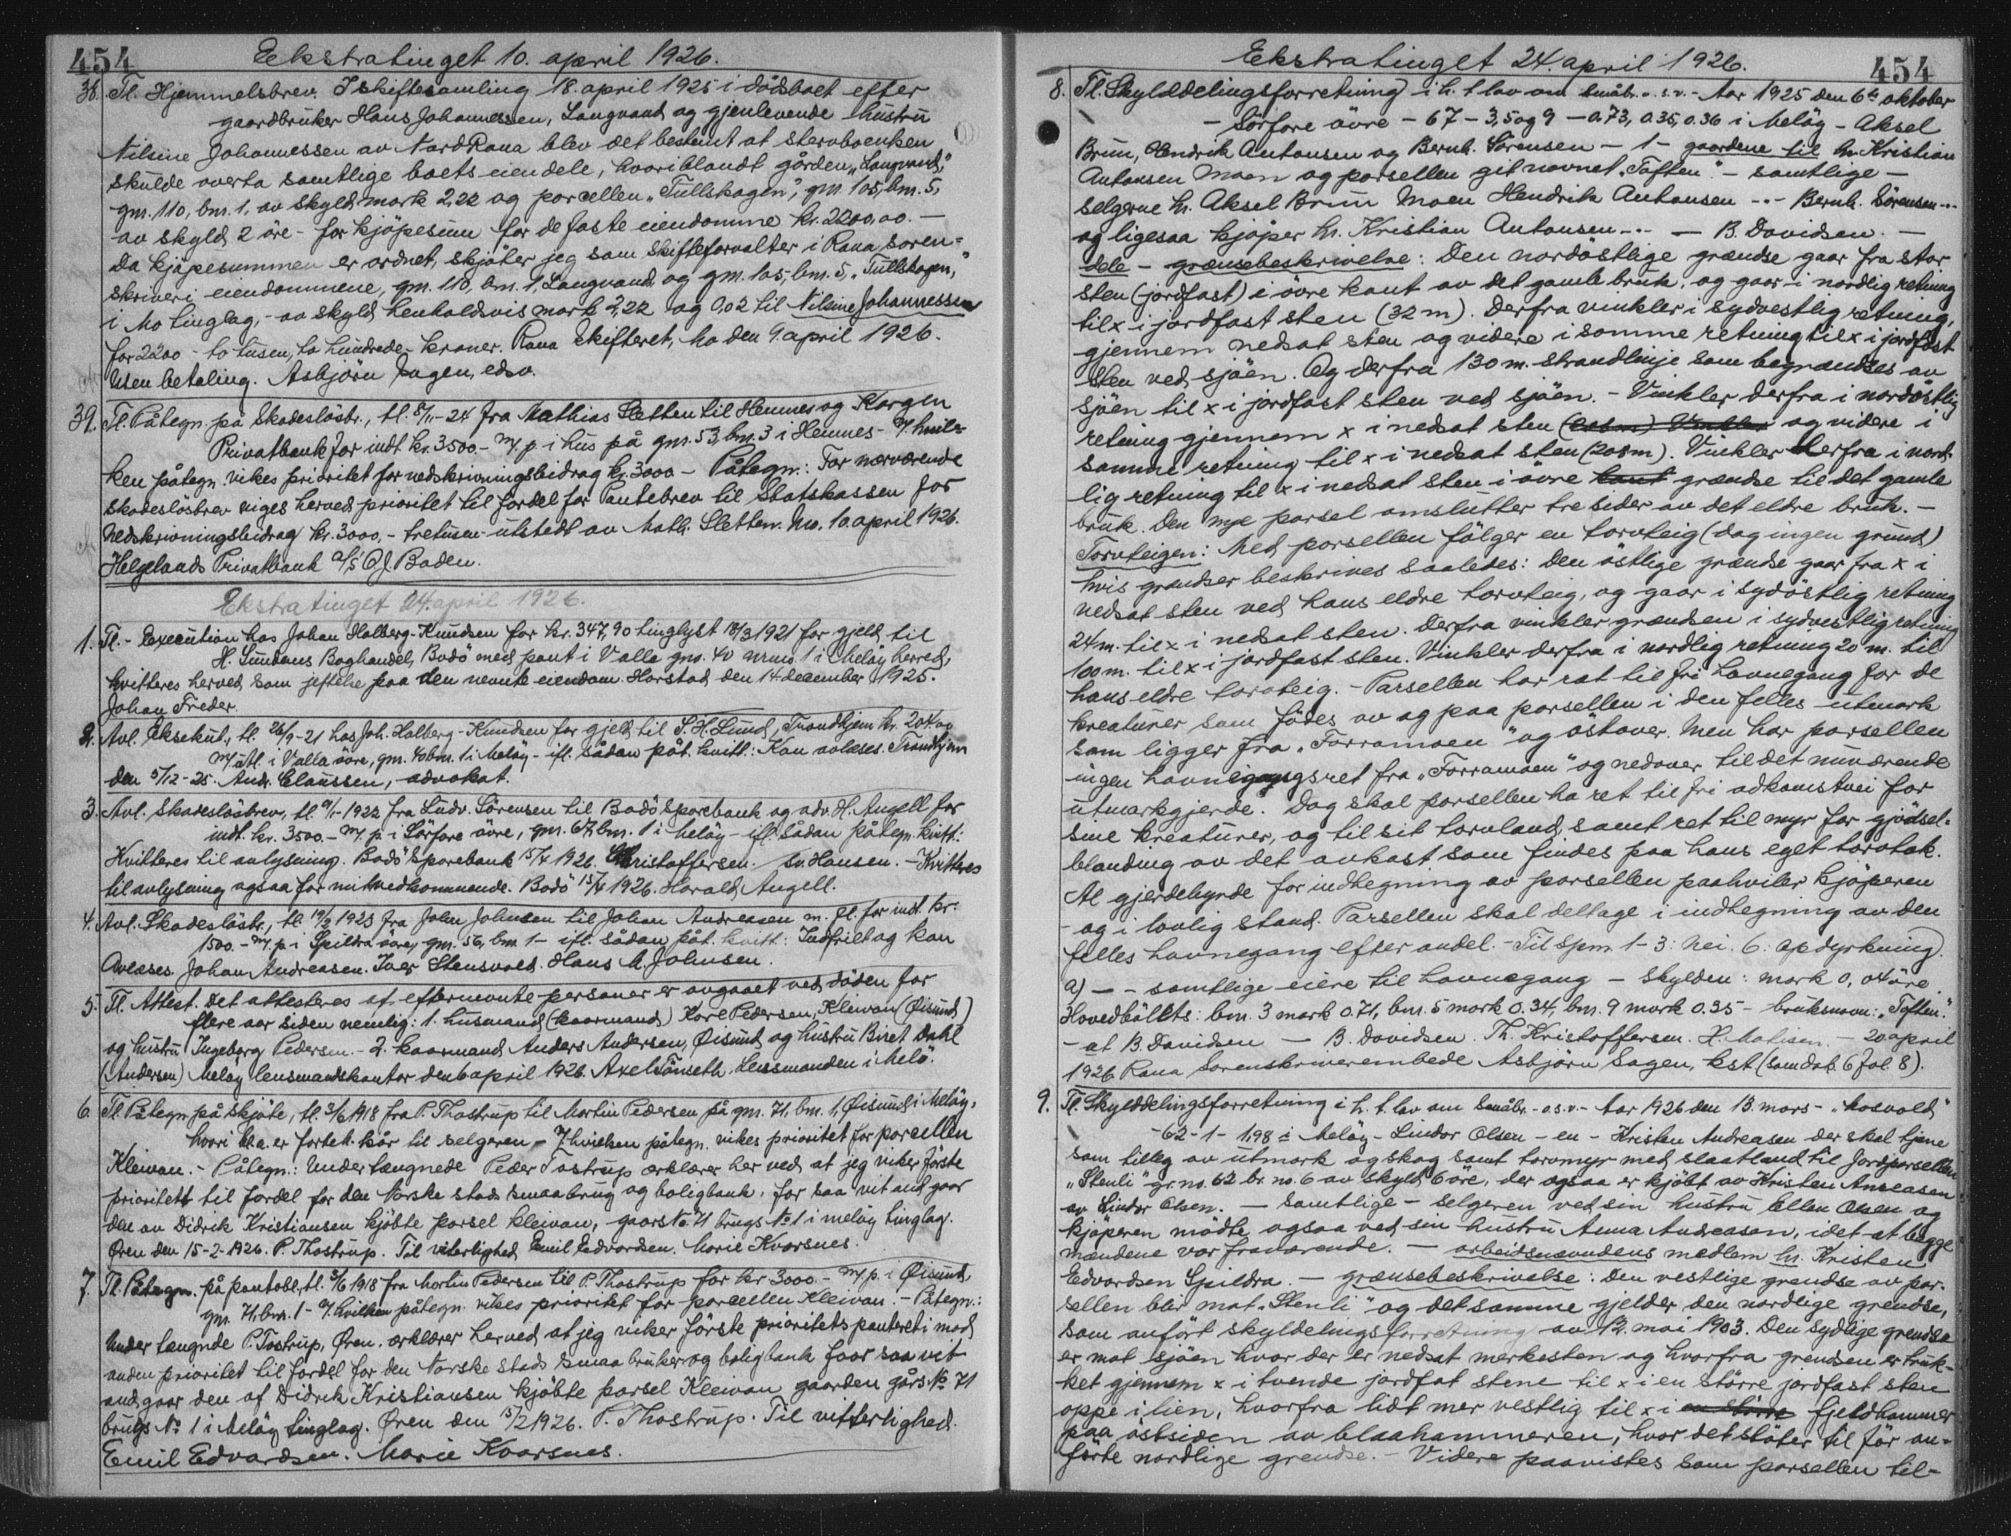 454
Ekstratinget 10. april 1926.
38. Tl. Hjemmelsbrev. I skiftesamling 18. april 1925 i dödsboet efter
gaardbruker Hans Johannessen, Langvand og gjenlevende hustru
Nilsine Johannessen av Nord Rana blev det bestemt at stervboenken
skulde overta samtlige boets eiendele, hvoriblandt gården „Langvand",
gm. 110, bm. 1. av skyld mark 2,22 og porcellen „Tullskogen", gm. 105, bm. 5,
av skyld 2 öre - for kjöpesum for de faste eiendomme kr. 2200,00. —
Da kjöpesummen er ordnet, skjöter jeg som skifteforvalter i Rana soren-
skriveri eiendommene, gm. 110, bm. 1, Langvand og gm. 105, bm. 5 „Tullskogen,"
i Mo tinglag, - av skyld henholdsvis mark 2,22 og 0,02 til Nilsine Johannessen
for 2200 - to tusen, to hundrede - kroner. Rana skifteret, Mo den 9. april 1926.
Uten betaling. Asbjörn Sagen, edsv.
39. Tl. Påtegn. på Skadeslöstr., tl. 8/11-24 fra Mathias Sletten til Hemnes og Korgen
Privatbank for indt kr. 3500.- m/ p. i hus på gm. 53, bm. 3 i Hemnes - v/ hvil-
ken påtegn. vikes prioritet for nedskrivningsbeidrag kr. 3000 - Påtegn.: For nærværende
skadeslöstrev viges herved prioritet til fordel for Pantebrev til Statskassen for
Nedskrivningsbeidrag kr. 3000, - tretusen - utstedt av Math. Sletten. Mo. 10. april 1926.
Helgelands Privatbank a/s O J. Boden.
Ekstratinget 24. april 1926.
1. Tl. - Execution hos Johan Holberg-Knudsen for kr. 347,90 tinglyst 18/3 1921 for gjeld til
H. Lundens Boghandel, Bodö med pant i Valla gno. 40 1 i Melöy herred,
kvitteres herved som paa den nevnte eiendom. Harstad den 14 december 1925.
Johan Freder.
2. Avl. Eksekut., tl. 26/9-21 hos Joh. Holberg-Knudsen for gjeld til S. H. Lund, Trondhjem kr. 204,00
m/ utl. i Valla övre, gm. 40 bm. 1 i Melöy - ifl. sådan påt. kvitt: Kan avlæses. Trondhjem
den 5/12-25. Andr. Claussen, advokat.
3. Avl. skadeslösbrev, tl. 9/1-1922 fra Ludv. Sörensen til Bodö Sparebank og adv. H. Angell for
indt. kr. 3500.- m/ p. i Sörfore övre, gm. 67, bm. 1 i Melöy - ifl. sådan påtegn. kvitt:
Kvitteres til avlysning. Bodö Sparebank 15/4 1926. Christoffersen. Sv. Hansen. - Kvitteres
til avlysning ogsaa for mitvedkommende. Bodö 15/4 1926. Harald Angell.
4. Avl. Skadeslöstr., tl. 19/2 1923 fra John Johnsen til Johan Andreasen m. fl. for indt. kr.
1500.- m/ p. i Spildra övre, gm. 56, bm 1 - ifl. sådan påt. kvitt: Indfriet og kan
Avlæses. Johan Andreasen. Iver Stensvold. Hans A. Johnsen.
5. Tl. Attest. Det attesteres at efternevnte personer er avgaaet ved döden for
flere aar siden nemlig: 1. husmand (kaarmand) Karl Pedersen, Kleivan (Öisund)
og hustru Ingeborg Pedersen. - 2. kaarmand Anders Andersen, Öisund og hustru Biret Dahl
(Andersen) Melöy lensmandskontor den 6 april 1926. Axel Tönseth. Lensmanden i Melö.
6. Tl. Påtegn. på skjöte, tl. 3/6 1918 fra P. Thostrup til Martin Pedersen på gm. 71, bm. 1, Öisund i Melöy,
hvori bl. a. er forbeh. kår til selgeren - v/ hvilken påtegn. vikes prioritet for porcellen
Kleivan. - Påtegn.: Undertægnede Peder Tostrup erklærer her ved at jeg viker förste
prioritett til fordel for den Norske stads smaabrug og boligbank, for saa vit and gaar
den av Didrik Kristiansen kjöbte parsel Kleivan, gaars No 71 brugs No 1 i Melöy tinglag.
Ören den 15-2-1926. P. Thostrup. Til viterlighed Emil Edvardsen. Marie Kvarsnes.
7. Tl. Påtegn. på pantobl., tl. 3/6 1918 fra Martin Pedersen til P. Thostrup for kr 3000.- m/ p. i Öisund,
gm. 71, bm. 1 - v/ hvilken påtegn. vikes prioritet for porcellen Kleivan. - Påtegn.:
Under tægnde P. Tostrup, Ören. erklærer herved at jeg viker förste prioritets panteret i mod
anden prioritet til fordel for den Norske stads smaa bruker og boligbank foor saa vet
and gaar den af Didrik Kristiansen kjöbte parsel Kleivan gaarden gårs No 71
brugs No 1 i Melöy tinglag. Ören den 15/2 1926. P. Thostrup. Til vitterlighed.
Emil Edvardsen. Marie Kvarsnes.
454
Ekstratinget 24. april 1926.
8. Tl. Skylddelingsforretning i h. t. lov om småbr. o.s.v. - Aar 1925 den 6te oktober
- Sörfore övre - 67 - 3, 5 og 9 - 0.73, 0.35, 0.36 i Melöy - Aksel
Brun, Hendrik Antonsen og Bernh. Sörensen - 1 - gaardene til hr. Kristian
Antonsen Moen og porsellen git navnet „Toften". - samtlige -
selgerne hr. Aksel Brun Moen Hendrik Antonsen -.- Bernh. Sörensen -.-
og ligesaa kjöper hr. Kristian Antonsen -.- - B. Davidsen. -
dele - grænsebeskrivelse: Den nordöstlige grændse gaar fra stor
sten (jordfast) i övre kant av det gamle bruk, og gaar i nordlig retning
til x i jordfast sten (32 m). Derfra vinkler i sydvestlig retning,
gjennem nedsat sten og videre i samme retning til x i jordfast
sten ved sjöen. Og derfra 130 m. strandlinje som begrændses av
sjöen til x i jordfast sten ved sjöen. - Vinkler derfra i nordöstlig
retning gjennem x i nedsat sten og videre i
samme retning til x i nedsat sten (208 m). Vinkler derfra i nord-
lig retning til x i nedsat sten i övre kant grændse til det gamle
bruk. Den nye porsel omslutter tre sider av det eldre bruk. -
Torvteigen: Med porsellen fölger en torvteig (dog ingen grund)
hvis grændser beskrives saaledes: Den östlige grændse gaar fra x i
nedsat sten ved hans eldre torvteig, og gaar i sydöstlig retning
24 m. til x i nedsat sten. Derfra vinkler grændsen i sydvestlig retning
100 m. til x i jordfast sten. Vinkler derfra i nordlig retning 20 m. til
hans eldre torvteig. - Parsellen har ret til fri havnegang for de
kreaturer som födes av og paa porsellen i den felles utmark
som ligger fra „Forramoen" og östover. Men har porsellen
ingen havnegangsret fra „Forramoen" og nedover til det nuværende
utmarkgjerde. Dog skal porsellen ha ret til fri adkomstvei for
sine kreaturer, og til sit torvland, samt ret til myr for gjödsel-
blanding av det avkast som findes paa hans eget torvtak.
Al gjerdebyrde for indhegning av porsellen paahviler kjöperen
- og i lovlig stand. Parsellen skal deltage i indhegning av den
felles havnegang efter andel. - Til spm. 1-3: Nei. 6: opdyrkning.
a) - - samtlige eiere til havnegang - Skylden: mark 0,04 öre.
Hovedbölets: bm. 3 mark 0.71, bm. 5 mark 0.34, bm. 9 mark 0.35 - bruksnavn: „Toften."
- at B. Davidsen - B. Davidsen. Th. Kristoffersen. H. Matisen. - 20 april
1926. Rana Sorenskriverembede Asbjörn Sagen, kst (Samdat. 6 fol. 8).
9. Tl. Skylddelingsforretning i h. t. lov om Småbr. - o s.v. - Aar 1926 den 13. mars - „Mosvold"
- 62 - 1 - 1,98 i Melöy - Lindor Olsen - en - Kristen Andreasen - der skal tjene
som tilleg av utmark og skog samt torvmyr med slaatland til Jordporsellen
„Stenli" gr. no. 62 br. no. 6 av skyld 6 öre, der ogsaa er kjöbt av Kristen Anreasen
av Lindor Olsen. - samtlige - selgeren ved sin hustru Ellen Olsen og
kjöperen mödte ogsaa ved sin hustru Anna Andreasen, idet at begge
mændene var fraværende. - arbeidsnevndens medlem hr. Kristen
Edvardsen Spildra. - grænsebeskrivelse: Den vestlige grendse av por-
sellen blir mot „Stenli" og det samme gjelder den nordlige grendse,
som anfört skyldelingsforretning av 12. mai 1903. Den sydlige grendse
er mot sjöen hvor der er nedsat merkesten og hvorfra grendsen er truk-
ket gjennem x i tvende jordfat stene til x i en större jordfast sten
oppe i lien, hvorfra lidt mer vestlig til x i en större fjeldhammer
paa östsiden av blaahammeren, hvor det stöter til för an-
förte nordlige grendse. - Videre paavistes som porsellen til-